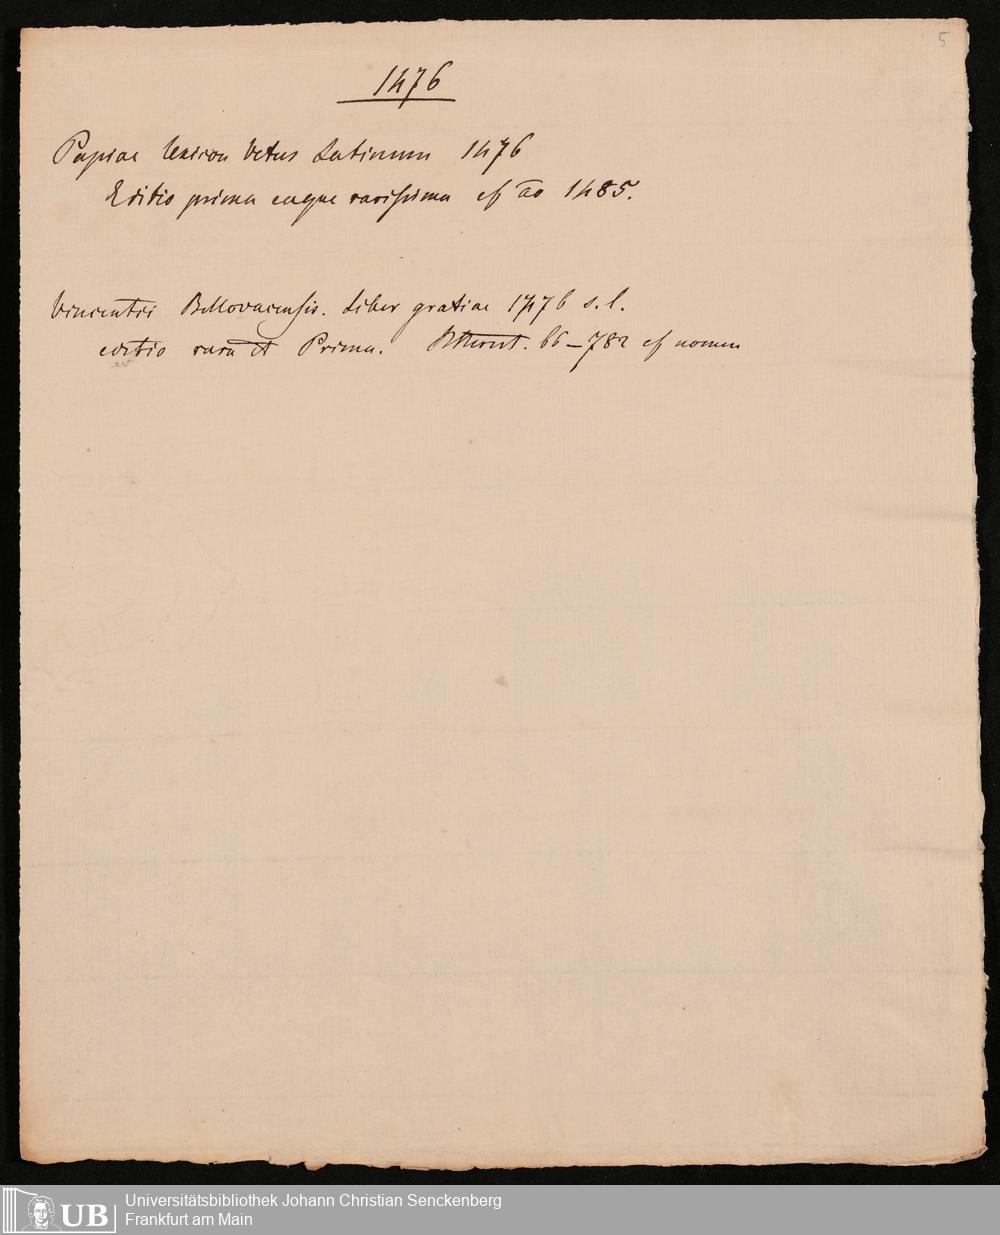 5
1476
Papiae lexicon vetus Latinum 1476
Editio prima eaque rarissima cf ao 1485.
Vincentii Bellovacensis. Liber gratiae 1476 s. l.
editio rara et Prima. 66–782 cf nomen
UB
Universitätsbibliothek Johann Christian Senckenberg
Frankfurt am Main